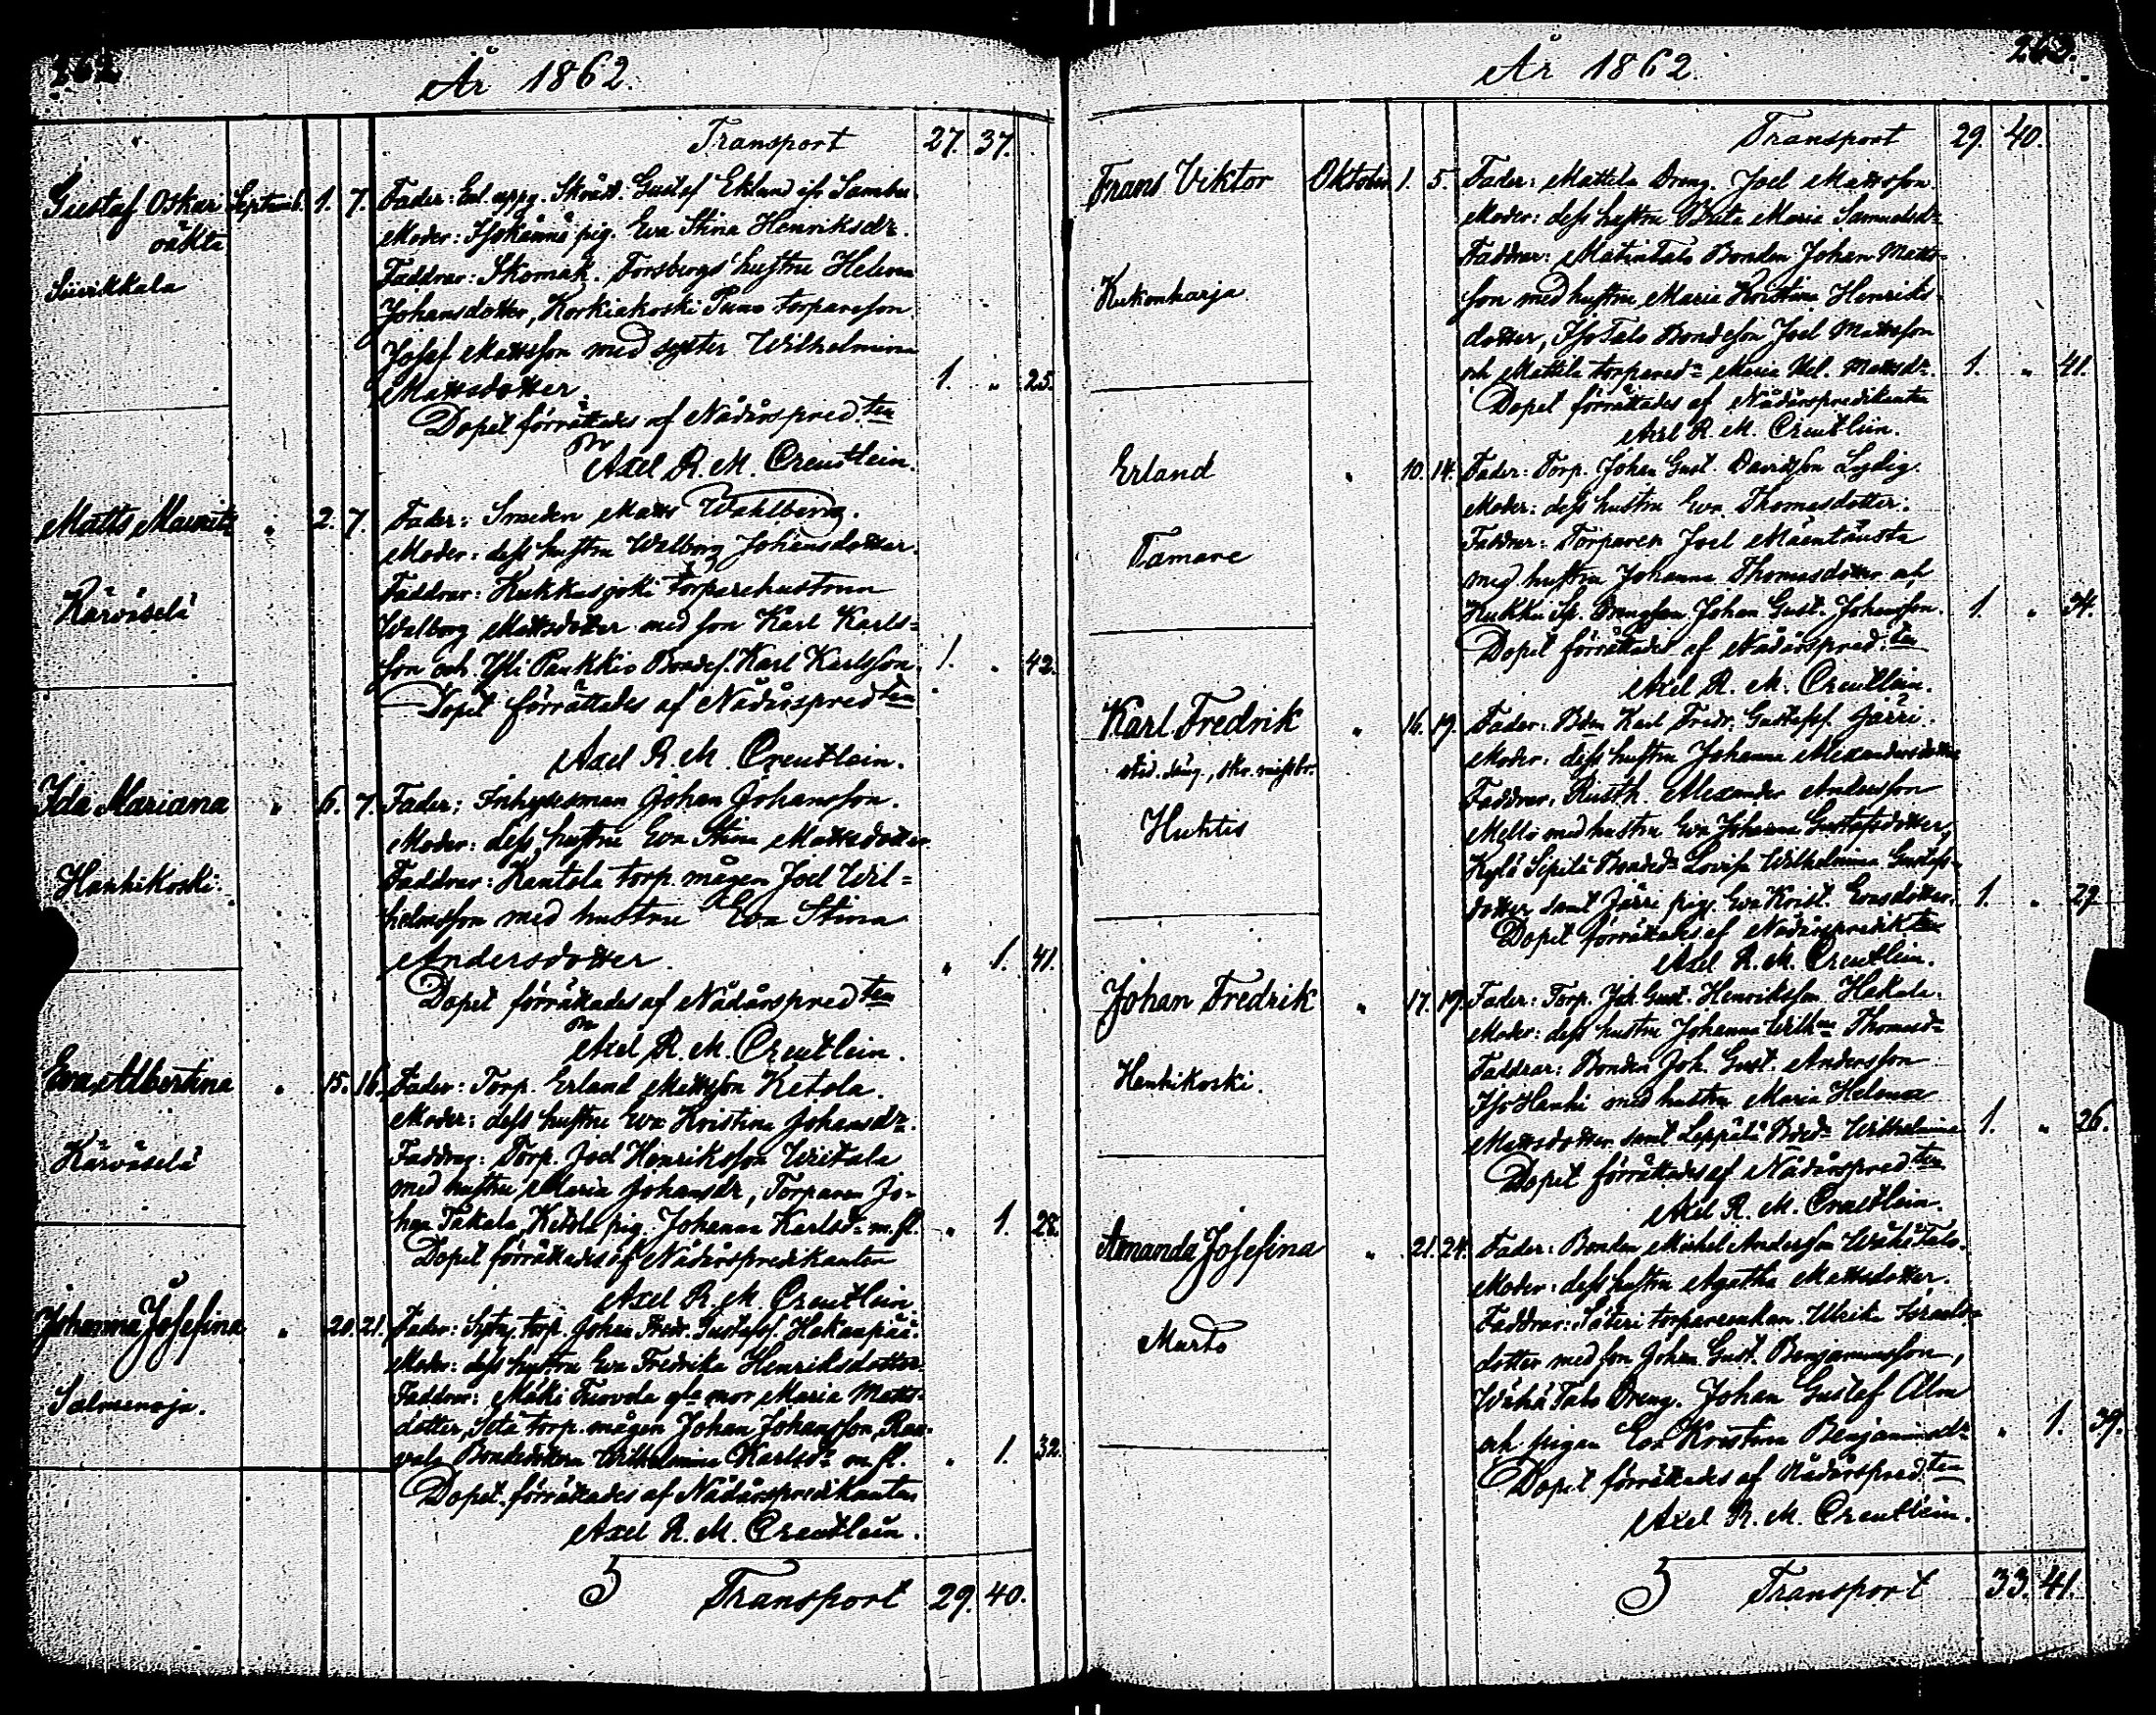 262
År 1862.
Transport 27. 37.
Gustaf Oskar Septemb. 1. 7. Fader: Enl. uppg. Skrädd. Gustaf Eklund ifr
oäkta Moder: Isohännä pig. Eva Stina Henriksdr.
Faddrar: Skomak. Forsbergs hustru Helena
Johansdotter, Korkiakoski Puno torpareson
Josef Mattsson med syster Wilhelmina
Mattsdotter. 1. " 25.
Dopet förrättades af Nådårspred.ten
Axel R. M. Creutlein.
Matts Mauritz " 2. 7. Fader: Smeden Matts Wahlberg.
Moder: dess hustru Walborg Johansdotter.
Kärväselä Faddrar: Kukkasjoki torparehustrun
Walborg Mattsdotter med son Karl Karls=
son och Yli Paukkio Bondes. Karl Karlsson. 1. " 42.
Dopet förrättades af Nådårspredten
Axel R. M. Creutlein.
Ida Mariana " 6. 7. Fader: Inhysesman Johan Johansson.
Moder: dess hustru Eva Stina Mattsdotter.
Hanhikoski. Faddrar: Rantola torp. mågen Joel Wil=
helmsson med hustru Eva Stina
Andersdotter. " 1. 41.
Dopet förrättades af Nådårspredten
Axel R. M. Creutlein.
Eva Albertina " 15. 16. Fader: Torp. Erland Mattsson Ketola.
Moder: dess hustru Eva Kristina Johansdr.
Kärväselä Faddrar: Torp. Joel Henriksson
med hustru Maria Johansdr, Torparen Jo=
han Takala, Ketola pig. Johanna Karlsdr m. fl. " 1. 28.
Dopet förrättades af Nådårspredikanten
Axel R. M. Creutlein.
Johanna Josefina " 20. 21. Fader: Sytn. torp. Johan Fredr. Gustafss. Hakanpää.
Moder: dess hustru Eva Fredrika Henriksdotter.
Salmenoja. Faddrar: Mäki mor Maria Matts=
dotter, torp. mågen Johan Johansson,
Bondedottern Wilhelmina Karlsdr m. fl. " 1. 32.
Dopet förrättades af Nådårspredikanten
Axel R. M. Creutlein.
5 Transport 29. 40.
263.
År 1862.
Transport 29. 40.
Frans Viktor Oktober 1. 5. Fader: Mattila Dreng. Joel Mattsson.
Moder: dess hustru Brita Maria Samuelsdr
Faddrar: Matintalo Bonden Johan Matts=
Kukonharja son med hustru Maria Kristina Henriks=
dotter, Iso Talo Bondeson Joel Mattsson
och Mattila torpared. Maria Hel. Mattsdr. 1. " 41.
Dopet förrättades af Nådårspredikanten
Axel R. M. Creutlein.
Erland " 10. 14. Fader: Torp. Johan Gust. Davidsson Lydig.
Moder: dess hustru Eva Thomasdotter.
Tamare Faddrar: Torparen Joel Mäentausta
med hustru Johanna Thomasdotter och
Kukku Sp. Drengson. Johan Gust. Johansson. 1. " 34.
Dopet förrättades af Nådårspred.ten
Axel R. M. Creutlein.
Karl Fredrik " 16. 19. Fader: Bdn Karl Fredr. Gustafss. Järri.
Moder: dess hustru Johanna Alexandersdotter
Faddrar: Rusth. Alexander Andersson
Huhtis Mello med hustru Eva Johanna Gustafsdotter,
Kylä Sipilä Bonded. Lovisa Wilhelmina Gustafs=
dotter samt Järri pig. Eva Krist. Ersdotter. 1. " 29.
Dopet förrättades af Nådårspredikten
Axel R. M. Creutlein.
Johan Fredrik " 17. 19. Fader: Torp. Joh. Gust. Henriksson Hakala.
Moder: dess hustru Johanna Wilhna Thomasdr
Hanhikoski. Faddrar: Bonden Joh. Gust. Andersson
Iso Hanhi med hustru Maria Helena
Mattsdotter samt Leppälä Bded. Wilhelmina 1. " 26.
Dopet förrättades af Nådårspredten
Axel R. M. Creutlein.
Amanda Josefina " 21. 24. Fader: Bonden Michel Andersson Wähä Talo.
Moder: dess hustru Agatha Mattsdotter.
Faddrar: Säteri torpareenkan Ulrika Israels=
Murto dotter med son Johan Gust. Benjaminsson,
Wähä Talo Dreng. Johan Gustaf Alm
och pigan Eva Kristina Benjaminsdr " 1. 39.
Dopet förrättades af Nådårspred.ten
Axel R. M. Creutlein.
5 Transport 33. 41.